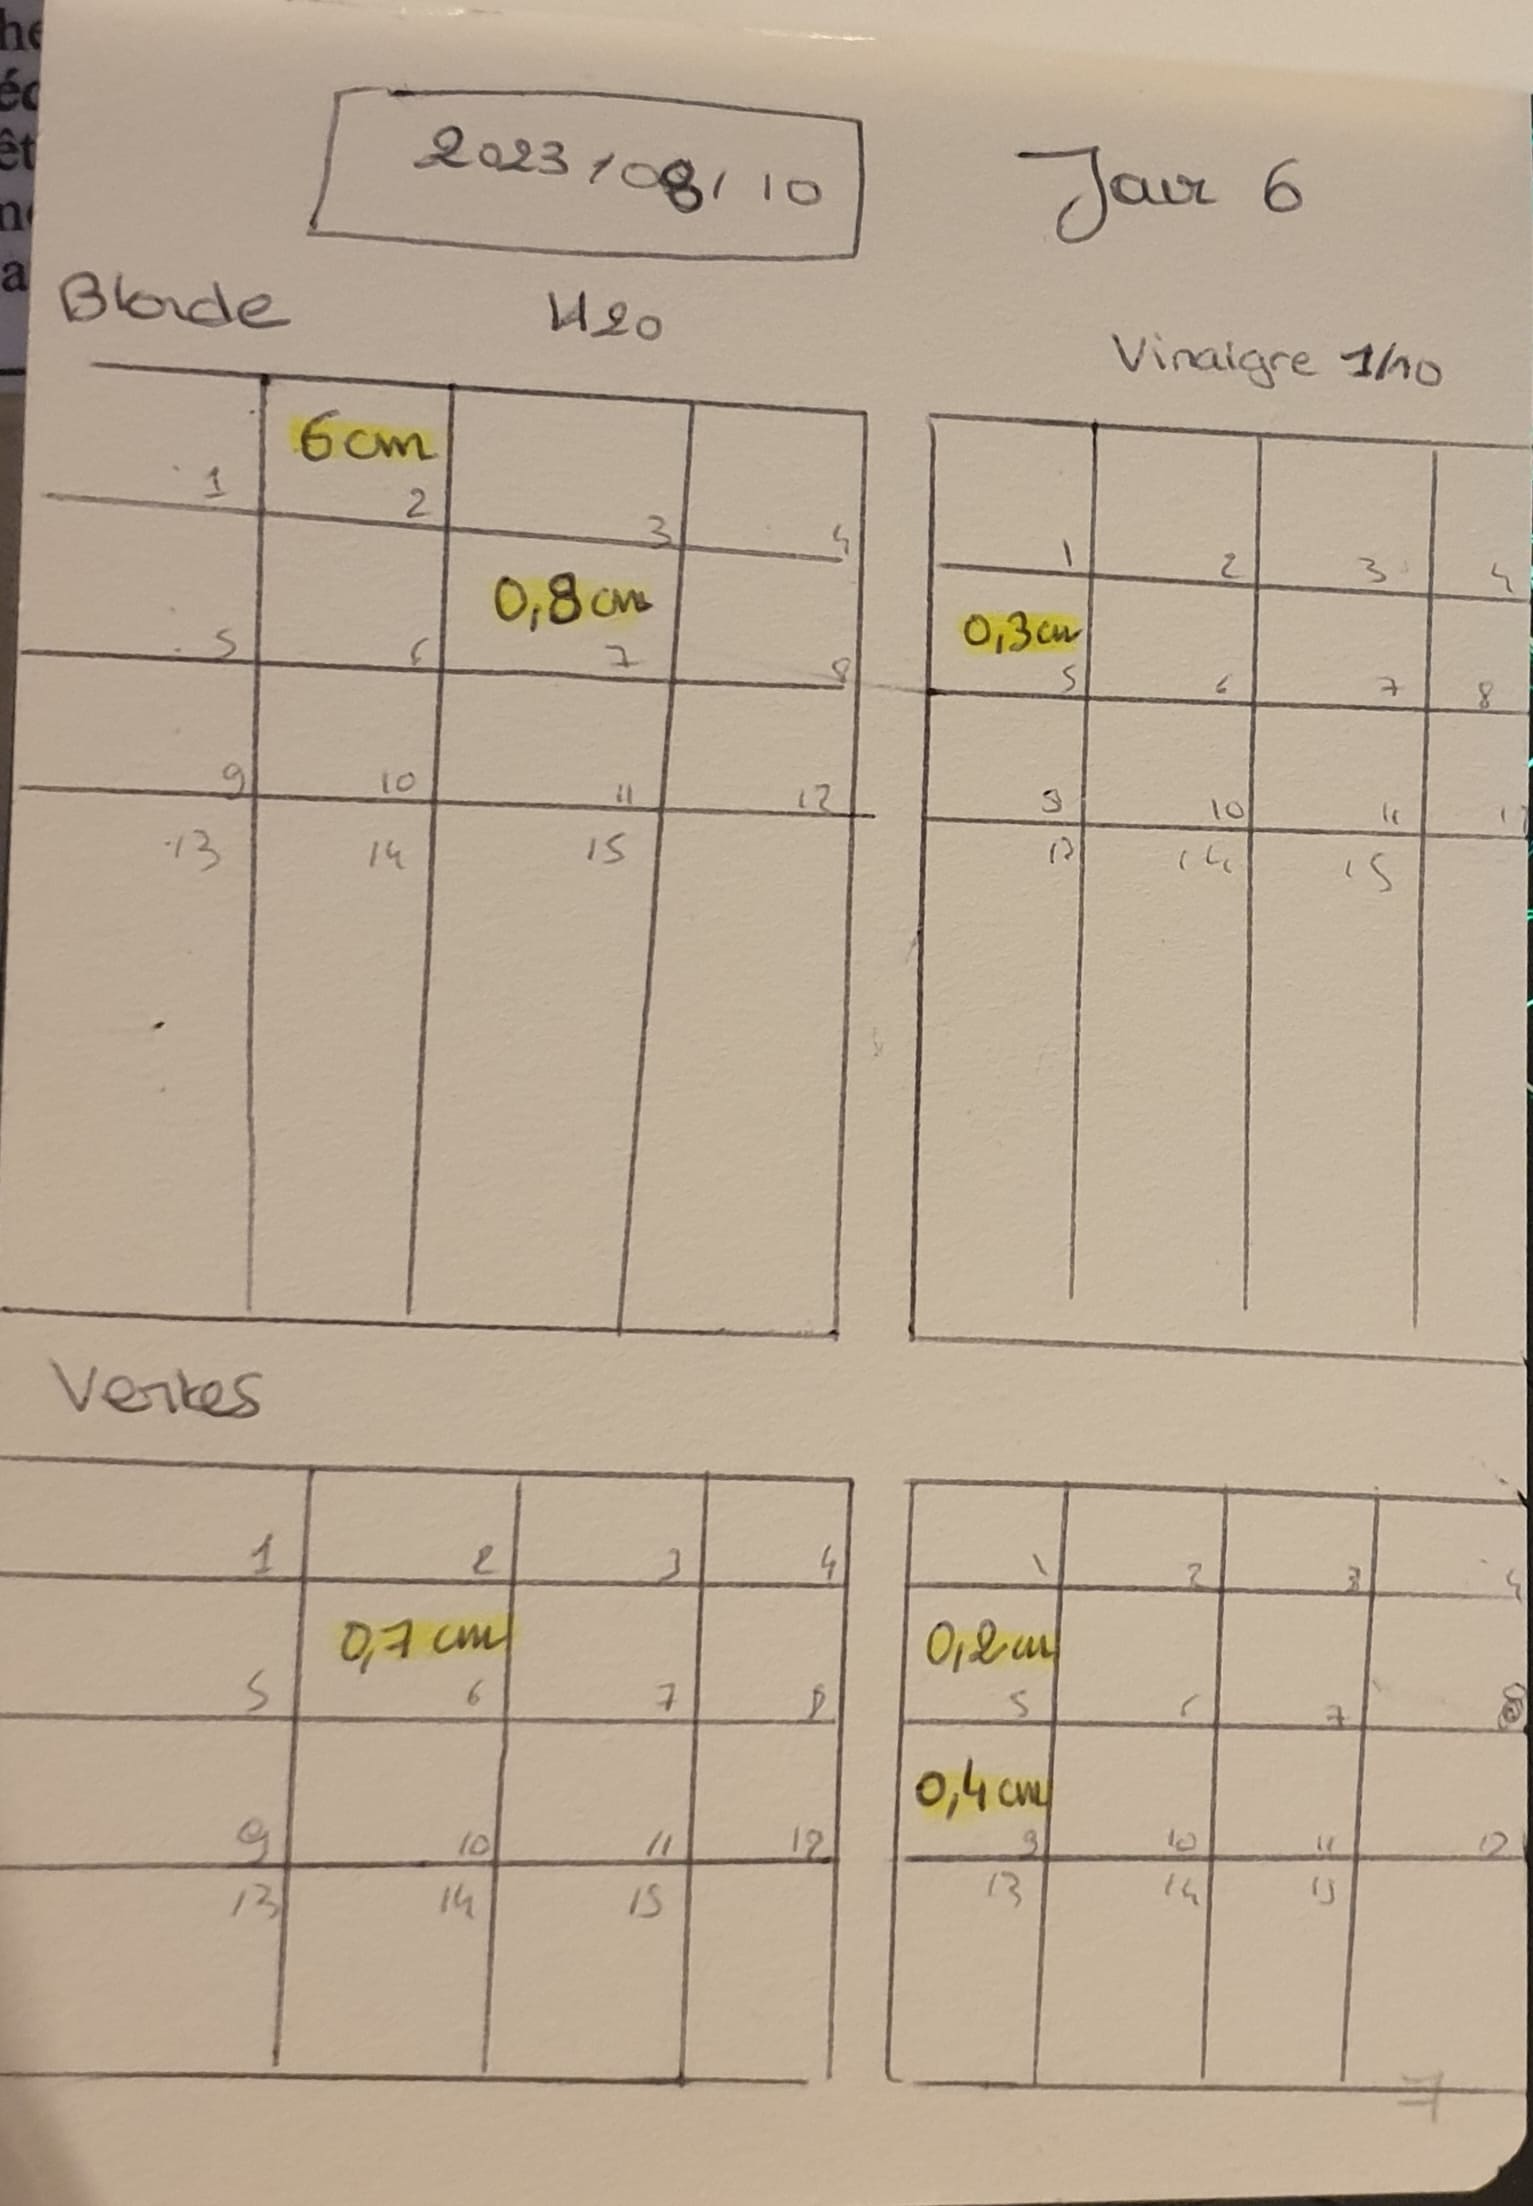 he
éc
êt
a
2023/08/10
Jour 6
Blonde H20
Vinaigre 1/10
6cm
1 2 3 4
0,8cm
5 6 7 8
9 10 11 12
13 14 15
1 2 3 4
0,3cm
5 6 7 8
9 10 11
13 14 15
Vertes
1 2 3 4
0,7 cm
5 6 7 8
9 10 11 12
13 14 15
1 2 3 4
0,2cm
5 6 7 8
0,4cm
9 10 11 12
13 14 15
7